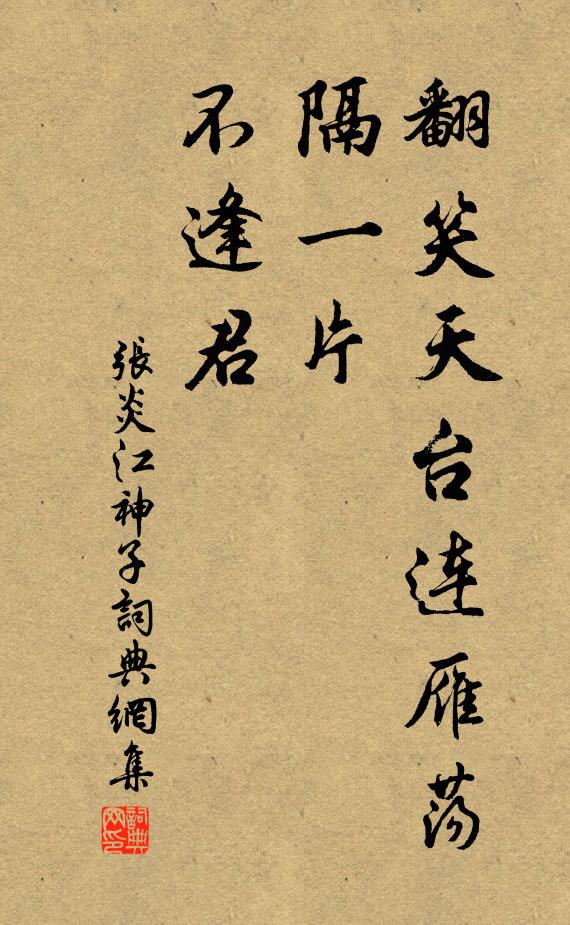 翻笑天台連雁蕩
隔一片
不逢君
張炎江神子詞典網集
詞典網印